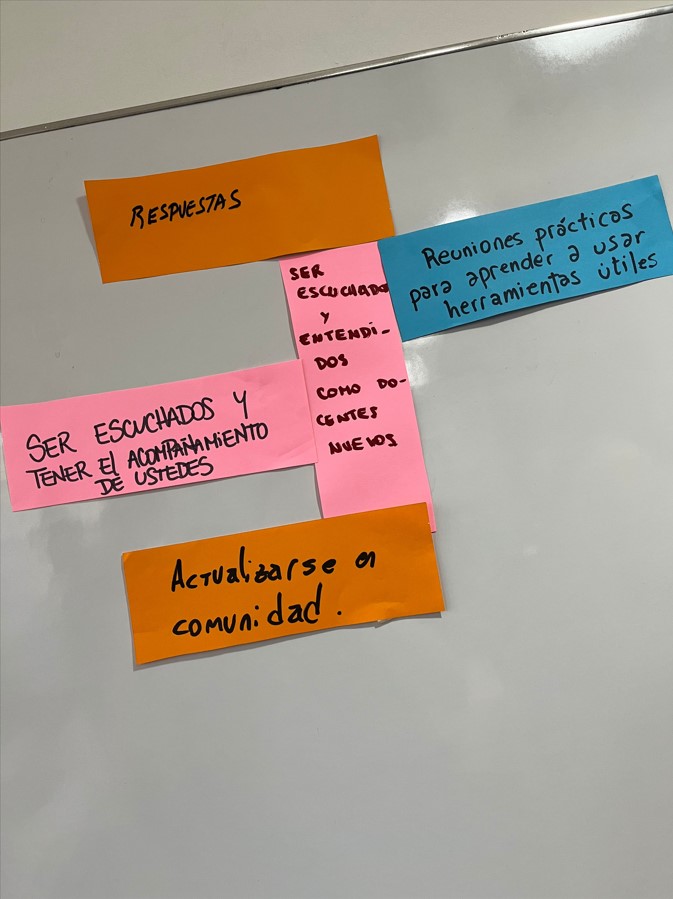 RESPUESTAS
Reuniones prácticas
para aprender a usar
herramientas útiles
SER
ESCUCHADOS
Y
ENTENDI-
DOS
COMO DO-
CENTES
NUEVOS
SER ESCUCHADOS Y
TENER EL ACOMPAÑAMIENTO
DE USTEDES
Actualizarse en
comunidad.